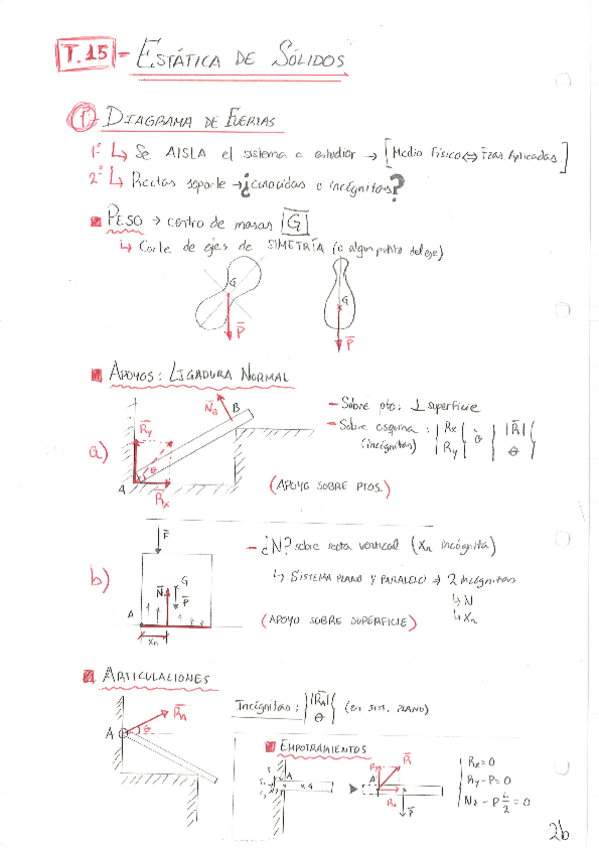 T.15 - ESTÁTICA DE SÓLIDOS
① DIAGRAMA DE FUERZAS
1º ↳ Se AISLA el sistema a estudiar → [Medio Físico ⇔ Fzas Aplicadas]
2º ↳ Rectas soporte → ¿conocidas o incógnitas?
PESO → centro de masas |G|
↳ Corte de ejes de SIMETRÍA (o algún puntito del eje)
G
P
G
P
APOYOS: LIGADURA NORMAL
a)
Ry
θ
A
Rx
NB
B
- Sobre pto: ⊥ superficie
- Sobre esquina: | Rx Ry | ó | |R| θ |
(incógnitas)
(APOYO SOBRE PTOS.)
b)
F
N
G
P
A
Xn
- ¿N? sobre recta vertical (Xn incógnita)
↳ SISTEMA PLANO Y PARALELO → 2 incógnitas
↳ N
↳ Xn
(APOYO SOBRE SUPERFICIE)
ARTICULACIONES
A
RA
θ
Incógnitas: | |RA| θ | (en sist. PLANO)
EMPOTRAMIENTOS
A
G
A
R
P
Rx=0
Ry-P=0
26